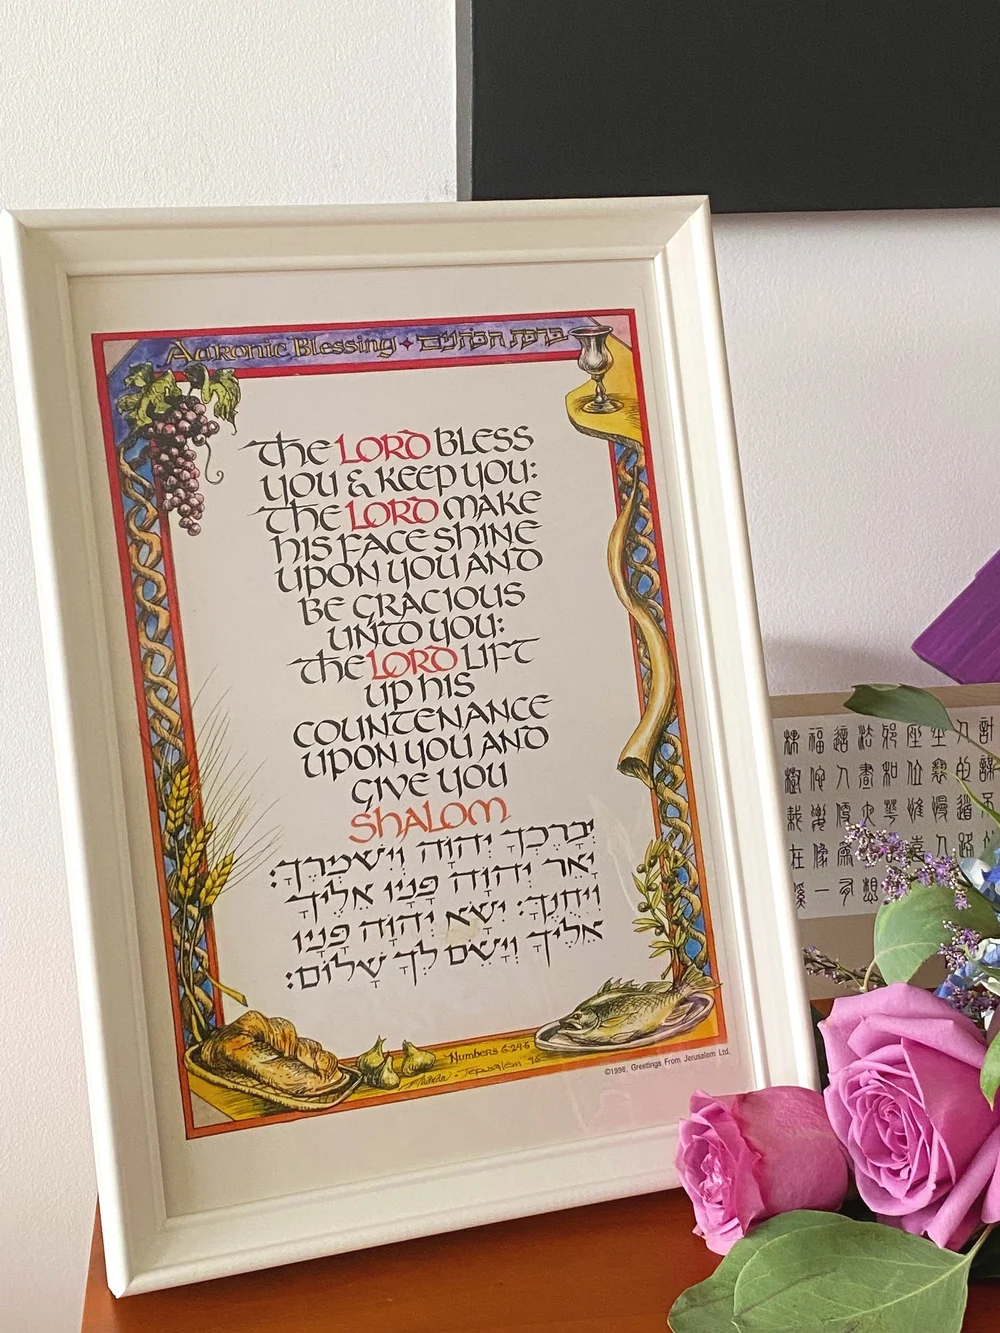 Aaronic Blessing ✦ ברכת הכהנים
The LORD bless
you & keep you:
The LORD make
his face shine
upon you and
be gracious
unto you:
The LORD lift
up his
countenance
upon you and
give you
Shalom
יְבָרֶכְךָ יְהוָה וְיִשְׁמְרֶךָ:
יָאֵר יְהוָה פָּנָיו אֵלֶיךָ
וִיחֻנֶּךָּ: יִשָּׂא יְהוָה פָּנָיו
אֵלֶיךָ וְיָשֵׂם לְךָ שָׁלוֹם:
Numbers 6:24-6
Jerusalem '95
©1996, Greetings From Jerusalem Ltd.
福 這
人 畫 和 位 的
在 像 人
一 想